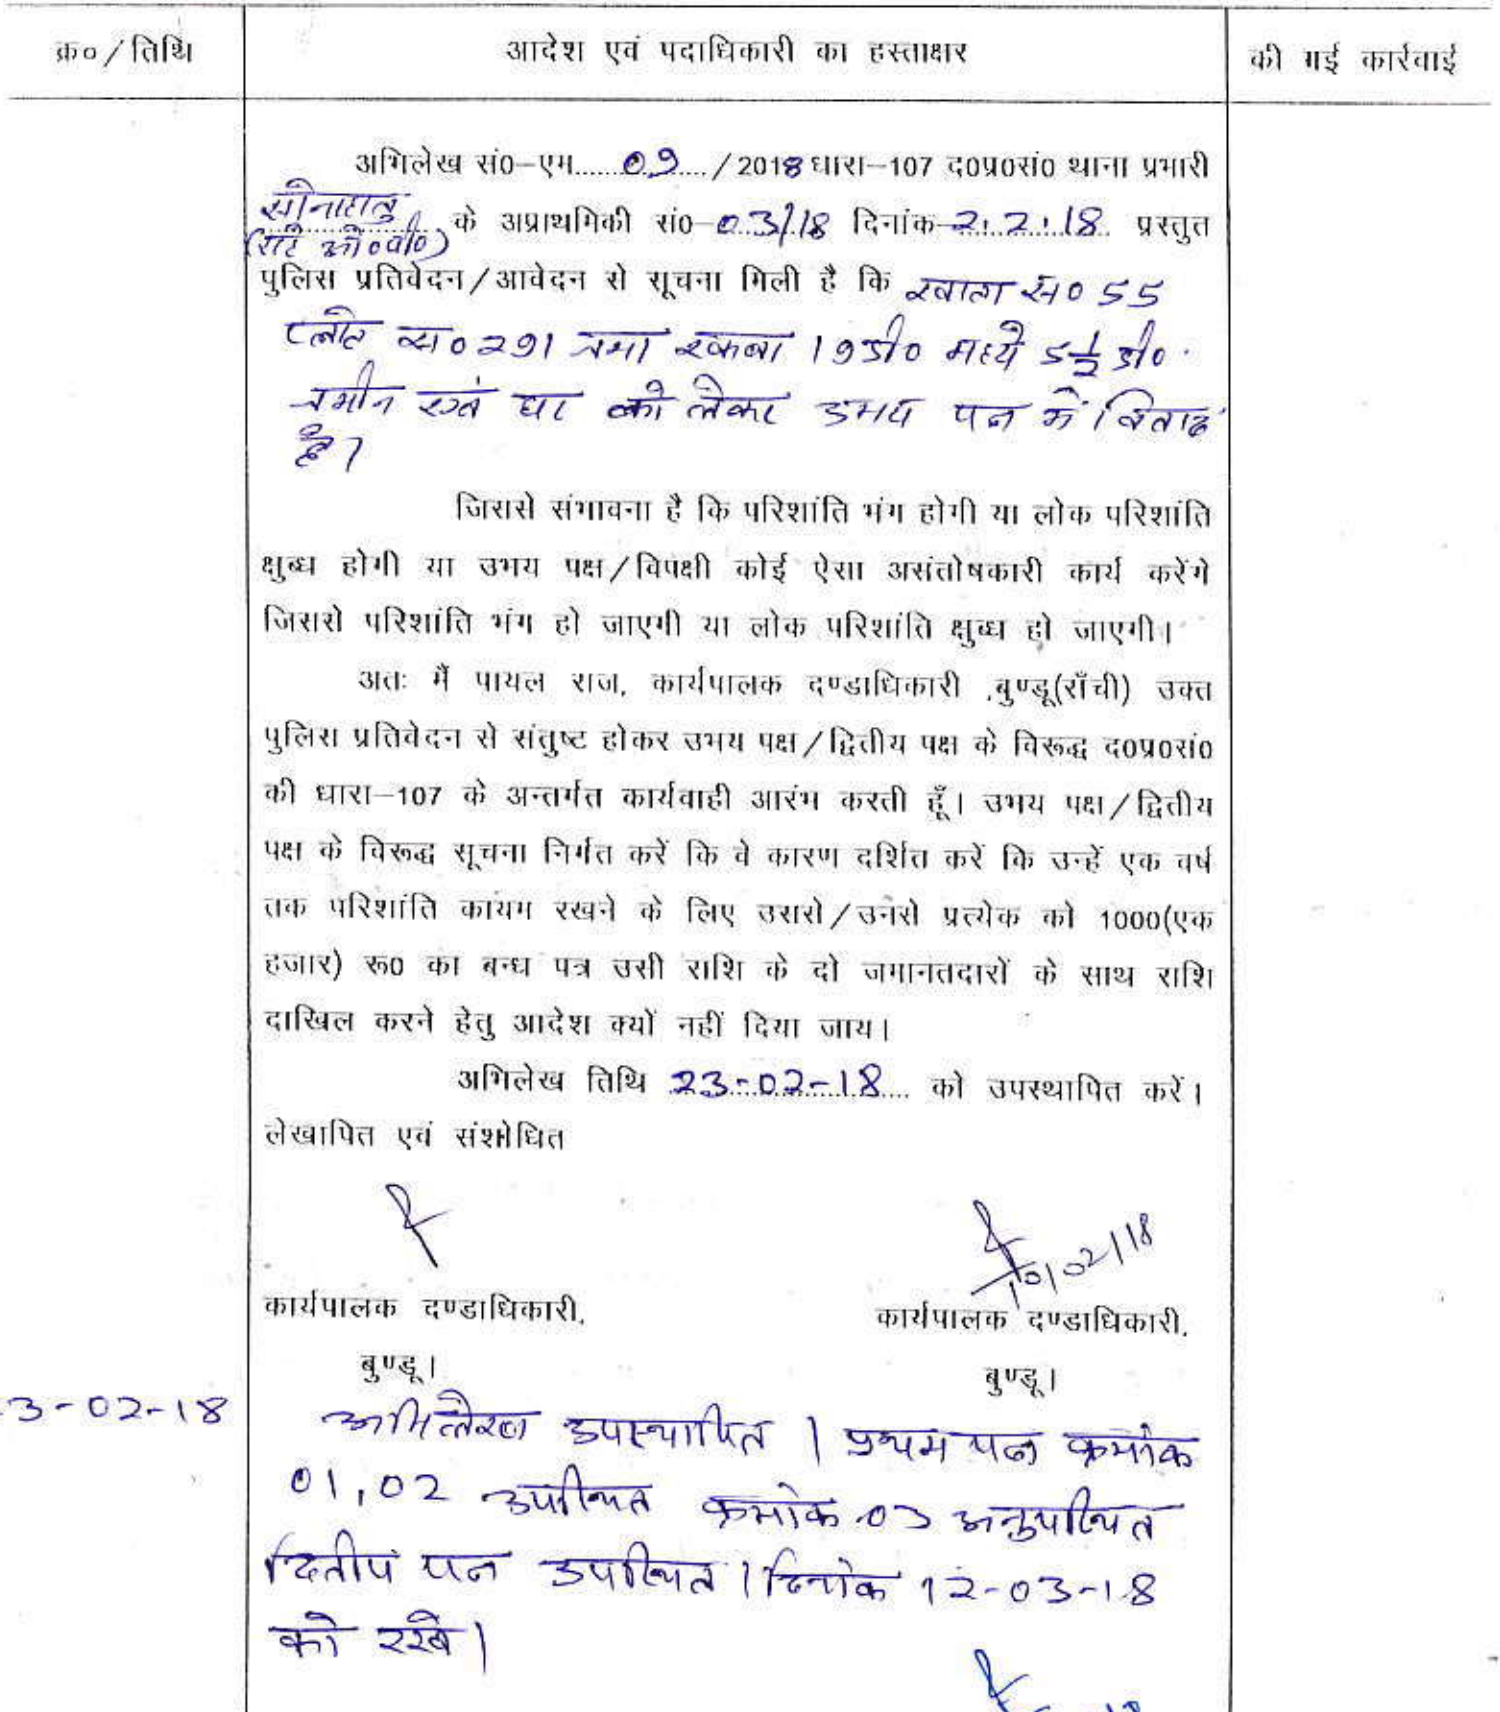 क्र०/तिथि
आदेश एवं पदाधिकारी का हस्ताक्षर
की गई कार्रवाई
अभिलेख सं०-एम......09..../2018 धारा-107 द०प्र०सं० थाना प्रभारी
सोनाहातु
(राहे ओ०पी०) के अप्राथमिकी सं०-03/18 दिनांक-2.2.18 प्रस्तुत
पुलिस प्रतिवेदन/आवेदन से सूचना मिली है कि खाता सं० 55
प्लॉट सं० 291 जमा रकबा 19 डी० मध्ये 5½ डी०
जमीन एवं घर को लेकर उभय पक्ष में विवाद
है।
जिससे संभावना है कि परिशांति भंग होगी या लोक परिशांति
क्षुब्ध होगी या उभय पक्ष/विपक्षी कोई ऐसा असंतोषकारी कार्य करेंगे
जिससे परिशांति भंग हो जाएगी या लोक परिशांति क्षुब्ध हो जाएगी।
अतः मैं पायल राज, कार्यपालक दण्डाधिकारी ,बुण्डू(राँची) उक्त
पुलिस प्रतिवेदन से संतुष्ट होकर उभय पक्ष/द्वितीय पक्ष के विरूद्ध द०प्र०सं०
की धारा-107 के अन्तर्गत कार्यवाही आरंभ करती हूँ। उभय पक्ष/द्वितीय
पक्ष के विरूद्ध सूचना निर्गत करें कि वे कारण दर्शित करें कि उन्हें एक वर्ष
तक परिशांति कायम रखने के लिए उससे/उनसे प्रत्येक को 1000(एक
हजार) रू० का बन्ध पत्र उसी राशि के दो जमानतदारों के साथ राशि
दाखिल करने हेतु आदेश क्यों नहीं दिया जाय।
अभिलेख तिथि 23-02-18 को उपस्थापित करें।
लेखापित एवं संशोधित
10/02/18
कार्यपालक दण्डाधिकारी,
कार्यपालक दण्डाधिकारी,
बुण्डू।
बुण्डू।
3-02-18
अभिलेख उपस्थापित। प्रथम पक्ष क्रमांक
01,02 उपस्थित क्रमांक 03 अनुपस्थित
द्वितीय पक्ष उपस्थित। दिनांक 12-03-18
को रखें।